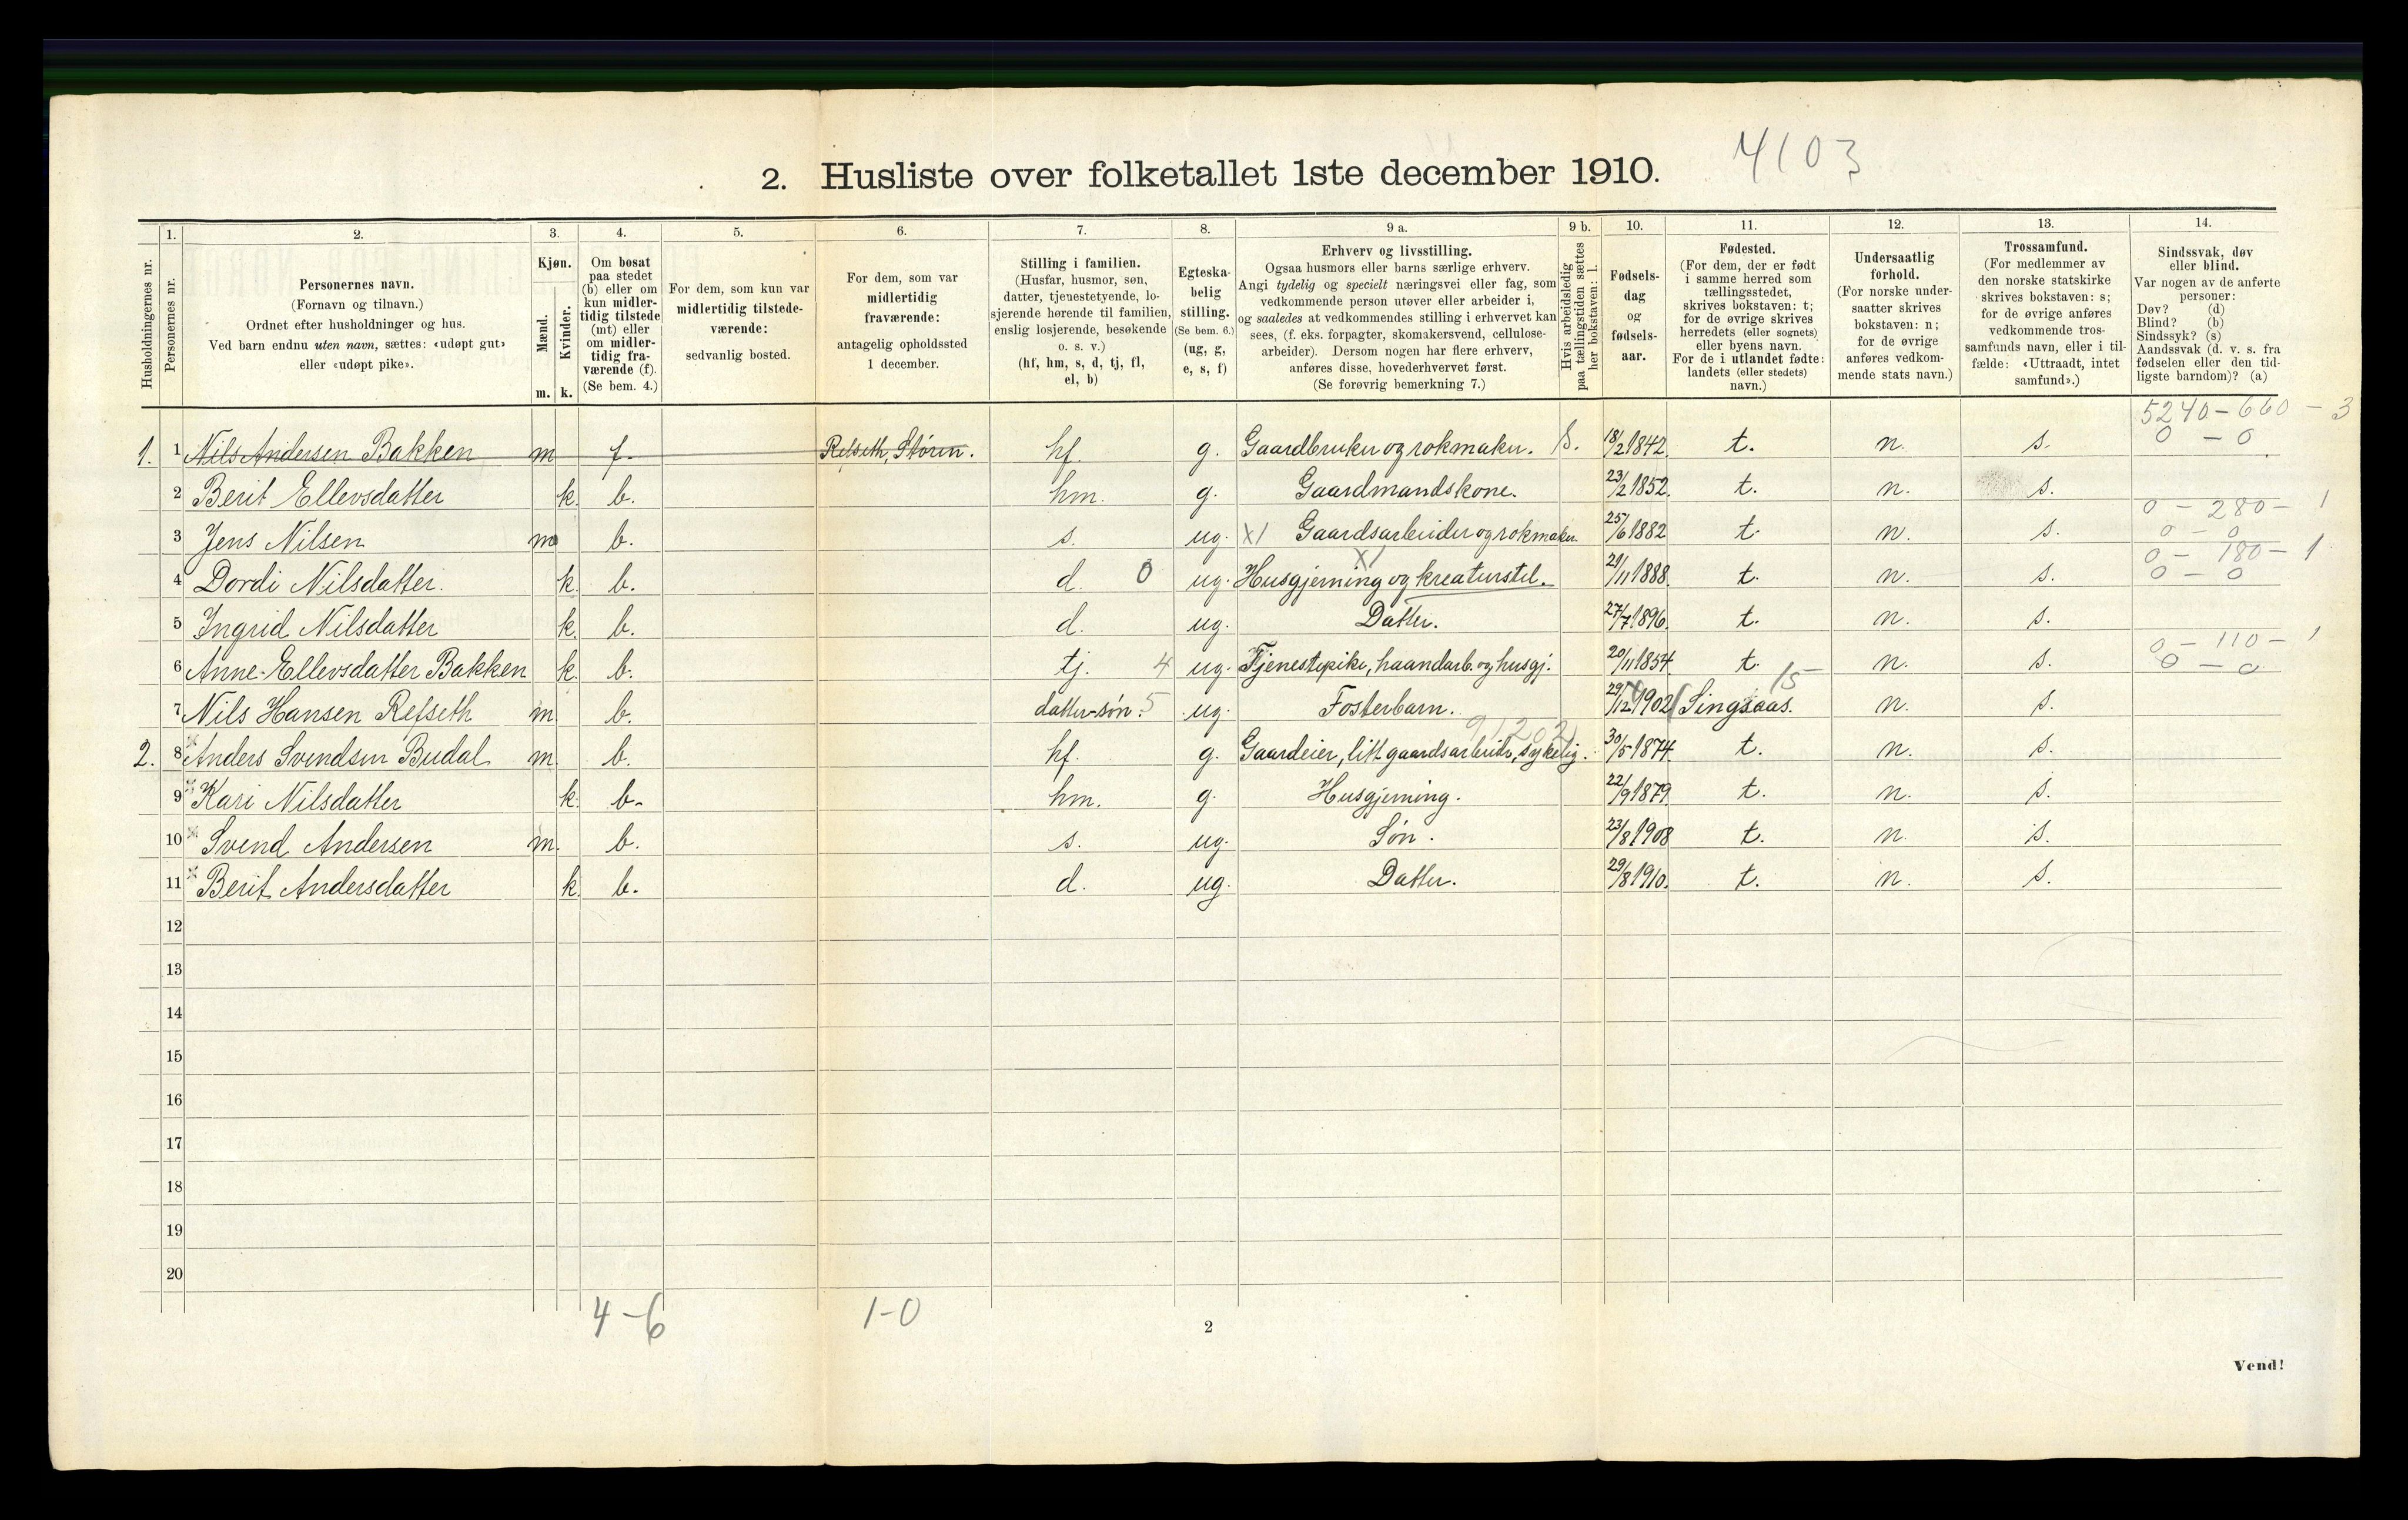 2. Husliste over folketallet 1ste december 1910. 4103
1. 2. 3. 4. 5. 6. 7. 8. 9 a. 9 b. 10. 11. 12. 13. 14.
Husholdningernes nr.
Personernes nr.
Personernes navn.
(Fornavn og tilnavn.)
Ordnet efter husholdninger og hus.
Ved barn endnu uten navn, sættes: «udøpt gut»
eller «udøpt pike».
Kjøn.
Mænd.
Kvinder.
m. k.
Om bosat
paa stedet
(b) eller om
kun midler-
tidig tilstede
(mt) eller
om midler-
tidig fra-
værende (f).
(Se bem. 4.)
For dem, som kun var
midlertidig tilstede-
værende:
sedvanlig bosted.
For dem, som var
midlertidig
fraværende:
antagelig opholdssted
1 december.
Stilling i familien.
(Husfar, husmor, søn,
datter, tjenestetyende, lo-
sjerende hørende til familien,
enslig losjerende, besøkende
o. s. v.)
(hf, hm, s, d, tj, fl,
el, b)
Egteska-
belig
stilling.
(Se bem. 6.)
(ug, g,
e, s, f)
Erhverv og livsstilling.
Ogsaa husmors eller barns særlige erhverv.
Angi tydelig og specielt næringsvei eller fag, som
vedkommende person utøver eller arbeider i,
og saaledes at vedkommendes stilling i erhvervet kan
sees, (f. eks. forpagter, skomakersvend, cellulose-
arbeider). Dersom nogen har flere erhverv,
anføres disse, hovederhvervet først.
(Se forøvrig bemerkning 7.)
Hvis arbeidsledig
paa tællingstiden sættes
her bokstaven: l.
Fødsels-
dag
og
fødsels-
aar.
Fødested.
(For dem, der er født
i samme herred som
tællingsstedet,
skrives bokstaven: t;
for de øvrige skrives
herredets (eller sognets)
eller byens navn.
For de i utlandet fødte:
landets (eller stedets)
navn.)
Undersaatlig
forhold.
(For norske under-
saatter skrives
bokstaven: n;
for de øvrige
anføres vedkom-
mende stats navn.)
Trossamfund.
(For medlemmer av
den norske statskirke
skrives bokstaven: s;
for de øvrige anføres
vedkommende tros-
samfunds navn, eller i til-
fælde: «Uttraadt, intet
samfund».)
Sindssvak, døv
eller blind.
Var nogen av de anførte
personer:
Døv? (d)
Blind? (b)
Sindssyk? (s)
Aandssvak (d. v. s. fra
fødselen eller den tid-
ligste barndom)? (a)
5240-660-3
1. 1 Nils Andersen Bakken m f. Refseth, Støren. hf. g. Gaardbruker og rokmaker. 18/2 1842 t. n. s. 0-0
2 Berit Ellevsdatter k. b. hm. g. Gaardmandskone. 23/2 1852. t. n. s.
0-280-1
3 Jens Nilsen m b. s. ug. X1 Gaardsarbeider og rokmaker. 25/6 1882 t. n. s. 0-0
X1 0-180-1
4 Dordi Nilsdatter. k. b. d. 0 ug. Husgjerning og kreaturstel. 29/11 1888. t. n. s. 0-0
5 Ingrid Nilsdatter k. b. d. ug. Datter. 27/7 1896. t. n. s.
0-110-1
6 Anne Ellevsdatter Bakken k. b. tj. 4 ug. Tjenestepike, haandarb. og husgj. 20/11 1854 t. n. s. 0-0
15
7 Nils Hansen Refseth m. b. datter-søn. 5 ug. Fosterbarn. 29/12 1902 Singsaas. n. s.
2. 8 Anders Svendsen Budal m. b. hf. g. Gaardeier, litt gaardsarbeide, sykelig. 30/5 1874. t. n. s.
9 Kari Nilsdatter k. b. hm. g. Husgjerning. 22/9 1879. t. n. s.
10 Svend Andersen m. b. s. ug. Søn. 23/8 1908 t. n. s.
11 Berit Andersdatter k. b. d. ug. Datter. 29/8 1910. t. n. s.
12
13
14
15
16
17
18
19
20
4-6 1-0
2
Vend!